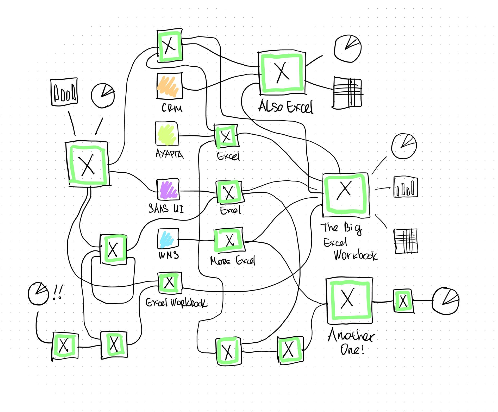 X
X
CRM
Also Excel
X
Excel
X
SAMS UI
X
Excel
X
The Big
Excel
Workbook
X
WMS
X
More Excel
X
Excel Workbook
X
Another
One!
X
!!
X
X
X
X